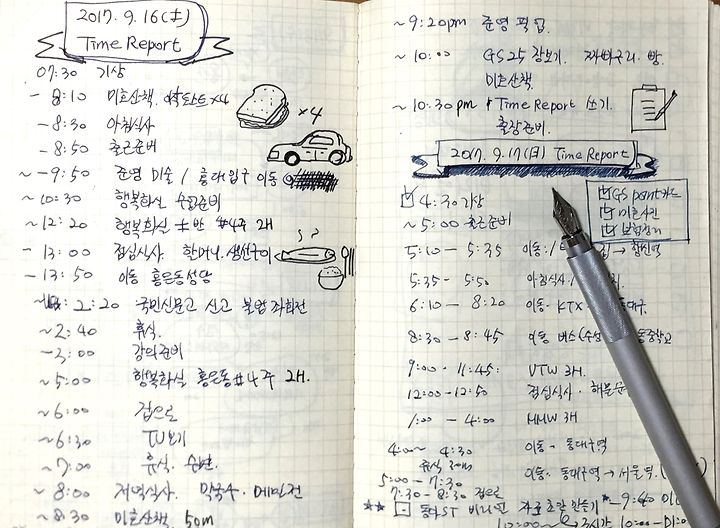 2017. 9. 16 (土)
Time Report
07:30 기상
- 8:10 미호산책. 샌드위치 ×4
×4
- 8:30 아침식사
- 8:50 출근준비
~ - 9:50 준영 미술 / 홍대입구 이동
~ 10:30 행복화실 수업준비
~ 12:20 행복화실 土반 #4주 2H
- 13:00 점심식사 한머니. 생선구이
- 13:50 이동 홍은동성당
2:20 국민신문고 신고 불법 좌회전
~ 2:40 휴식.
- 3:00 강의준비
~ 5:00 행복화실 홍은동 #4주 2H.
~ 6:00 집으로
~ 6:30 TV보기
~ 7:00 휴식.
~ 8:00 저녁식사. 막국수. 메밀전
~ 8:30 미호산책 50m
~ 9:20pm 준영 픽업.
~ 10:00 GS25 장보기. 짜파구리. 빵.
미호산책.
~ 10:30pm Time Report 쓰기.
출장준비.
2017. 9. 17 (日) Time Report
4:30 기상
~ 5:00 출근준비
GS point카드
미호사진
보험정리
5:10 - 5:35 이동 / 집 → 행신역
5:35 - 5:50 아침식사 /
6:10 - 8:20 이동. KTX 동대구.
8:30 - 8:45 이동 버스 (수성 동중학교
9:00 - 11:45: VTW 3H.
12:00 - 12:50 점심식사. 해물순
1:00 - 4:00 MMW 3H
4:00 ~ 4:30 이동 - 동대구역
휴식 30m
5:00 - 7:30 이동. 동대구역 → 서울역.
7:30 - 8:30 집으로